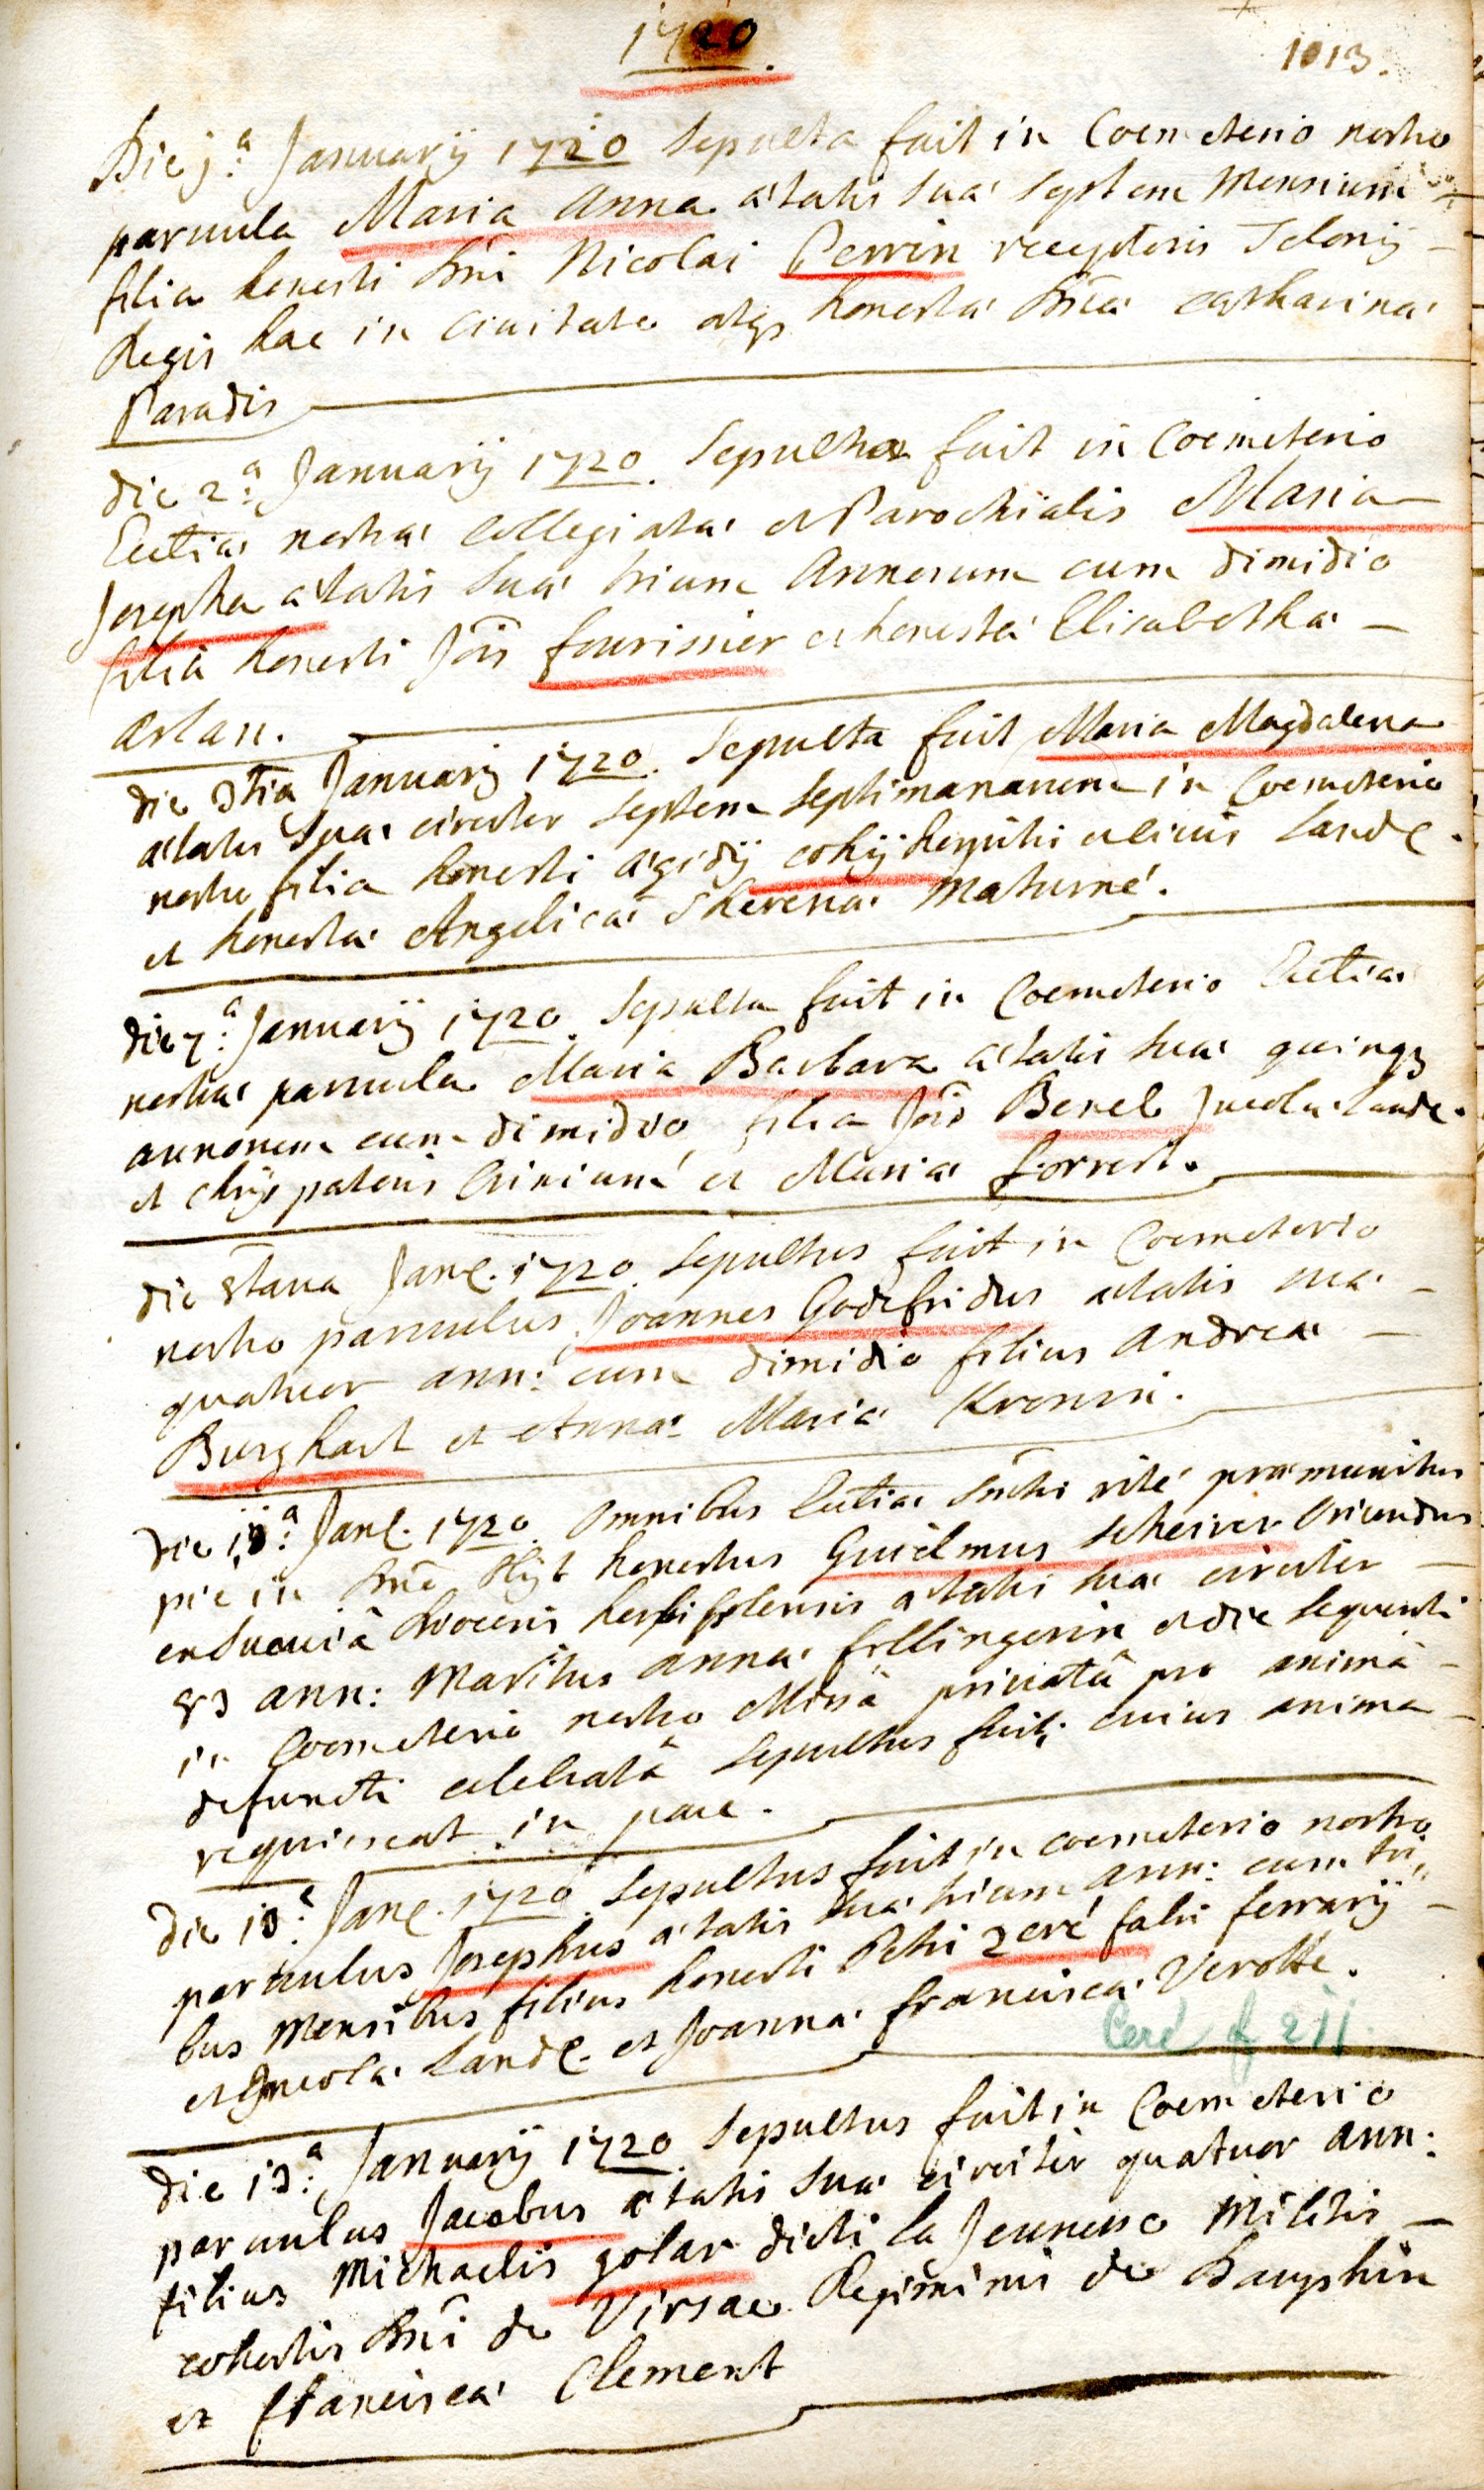 1720.
1013.
Die j.a Januarij 1720 Sepulta fuit in Coemeterio nostro
parvula Maria Anna ætatis suæ septem Mensium
filia honesti Dni Nicolai Perrin receptoris Telonij
Regis hac in Civitate atq3 honestæ Dnæ Catharinæ
Paradis
die 2.a Januarij 1720. Sepulta fuit in Coemeterio
Ecctiæ nostræ Collegiatæ et Parochialis Maria
Josepha ætatis suæ trium Annorum cum dimidio
filia honesti Jõis fourissier et honestæ Elisabethæ
Artan.
die 3tia Januarij 1720. Sepulta fuit Maria Magdalena
ætatis suæ circiter septem septimanarum in Coemeterio
nostro filia honesti ægidij cohij hospitis et civis Land.
et honestæ Angelicæ Therenæ Maturné.
die 7.a Januarij 1720. Sepulta fuit in Coemeterio Ecctiæ
nostræ parvula Maria Barbara ætatis suæ quinq3
annorum cum dimidio, filia Jõis Benel Incolæ Landæ.
et Maria forrest.
die 8tava Jan. 1720. Sepultus fuit in Coemeterio
nostro parvulus Joannes Godefridus ætatis suæ
quatuor ann: cum dimidio filius Andreæ
Burghart et Annæ Mariæ Kronin.
die Jan. 1720. Omnibus Ecctiæ Smtis rité præmunitus
pié in Dno obijt honestus Guielmus Scheirer Oriundus
diocesis herbipolensis ætatis suæ circiter
ann: Maritus Annæ fillingerin et die sequenti
in Coemeterio nostro Missâ privatâ pro animâ
defuncti celebratâ sepultus fuit; cuius anima
requiescat in pace.
die 13.a Jan. 1720. Sepultus fuit in coemeterio nostro
parvulus Josephus ætatis suæ trium ann: cum tri„
bus Mensibus filius honesti Petri zeré fabri ferrarij
et Incolæ Land. et Joannæ franciscæ Verotte.
Ceré f 211.
die 13.a Januarij 1720. Sepultus fuit in Coemeterio
parvulus Jacobus ætatis suæ circiter quatuor ann:
filius Michaelis golar dicti la Jeunesse Militis
cohortis Dni de Virsac Regiminis de Dauphin
et franciscæ Clement